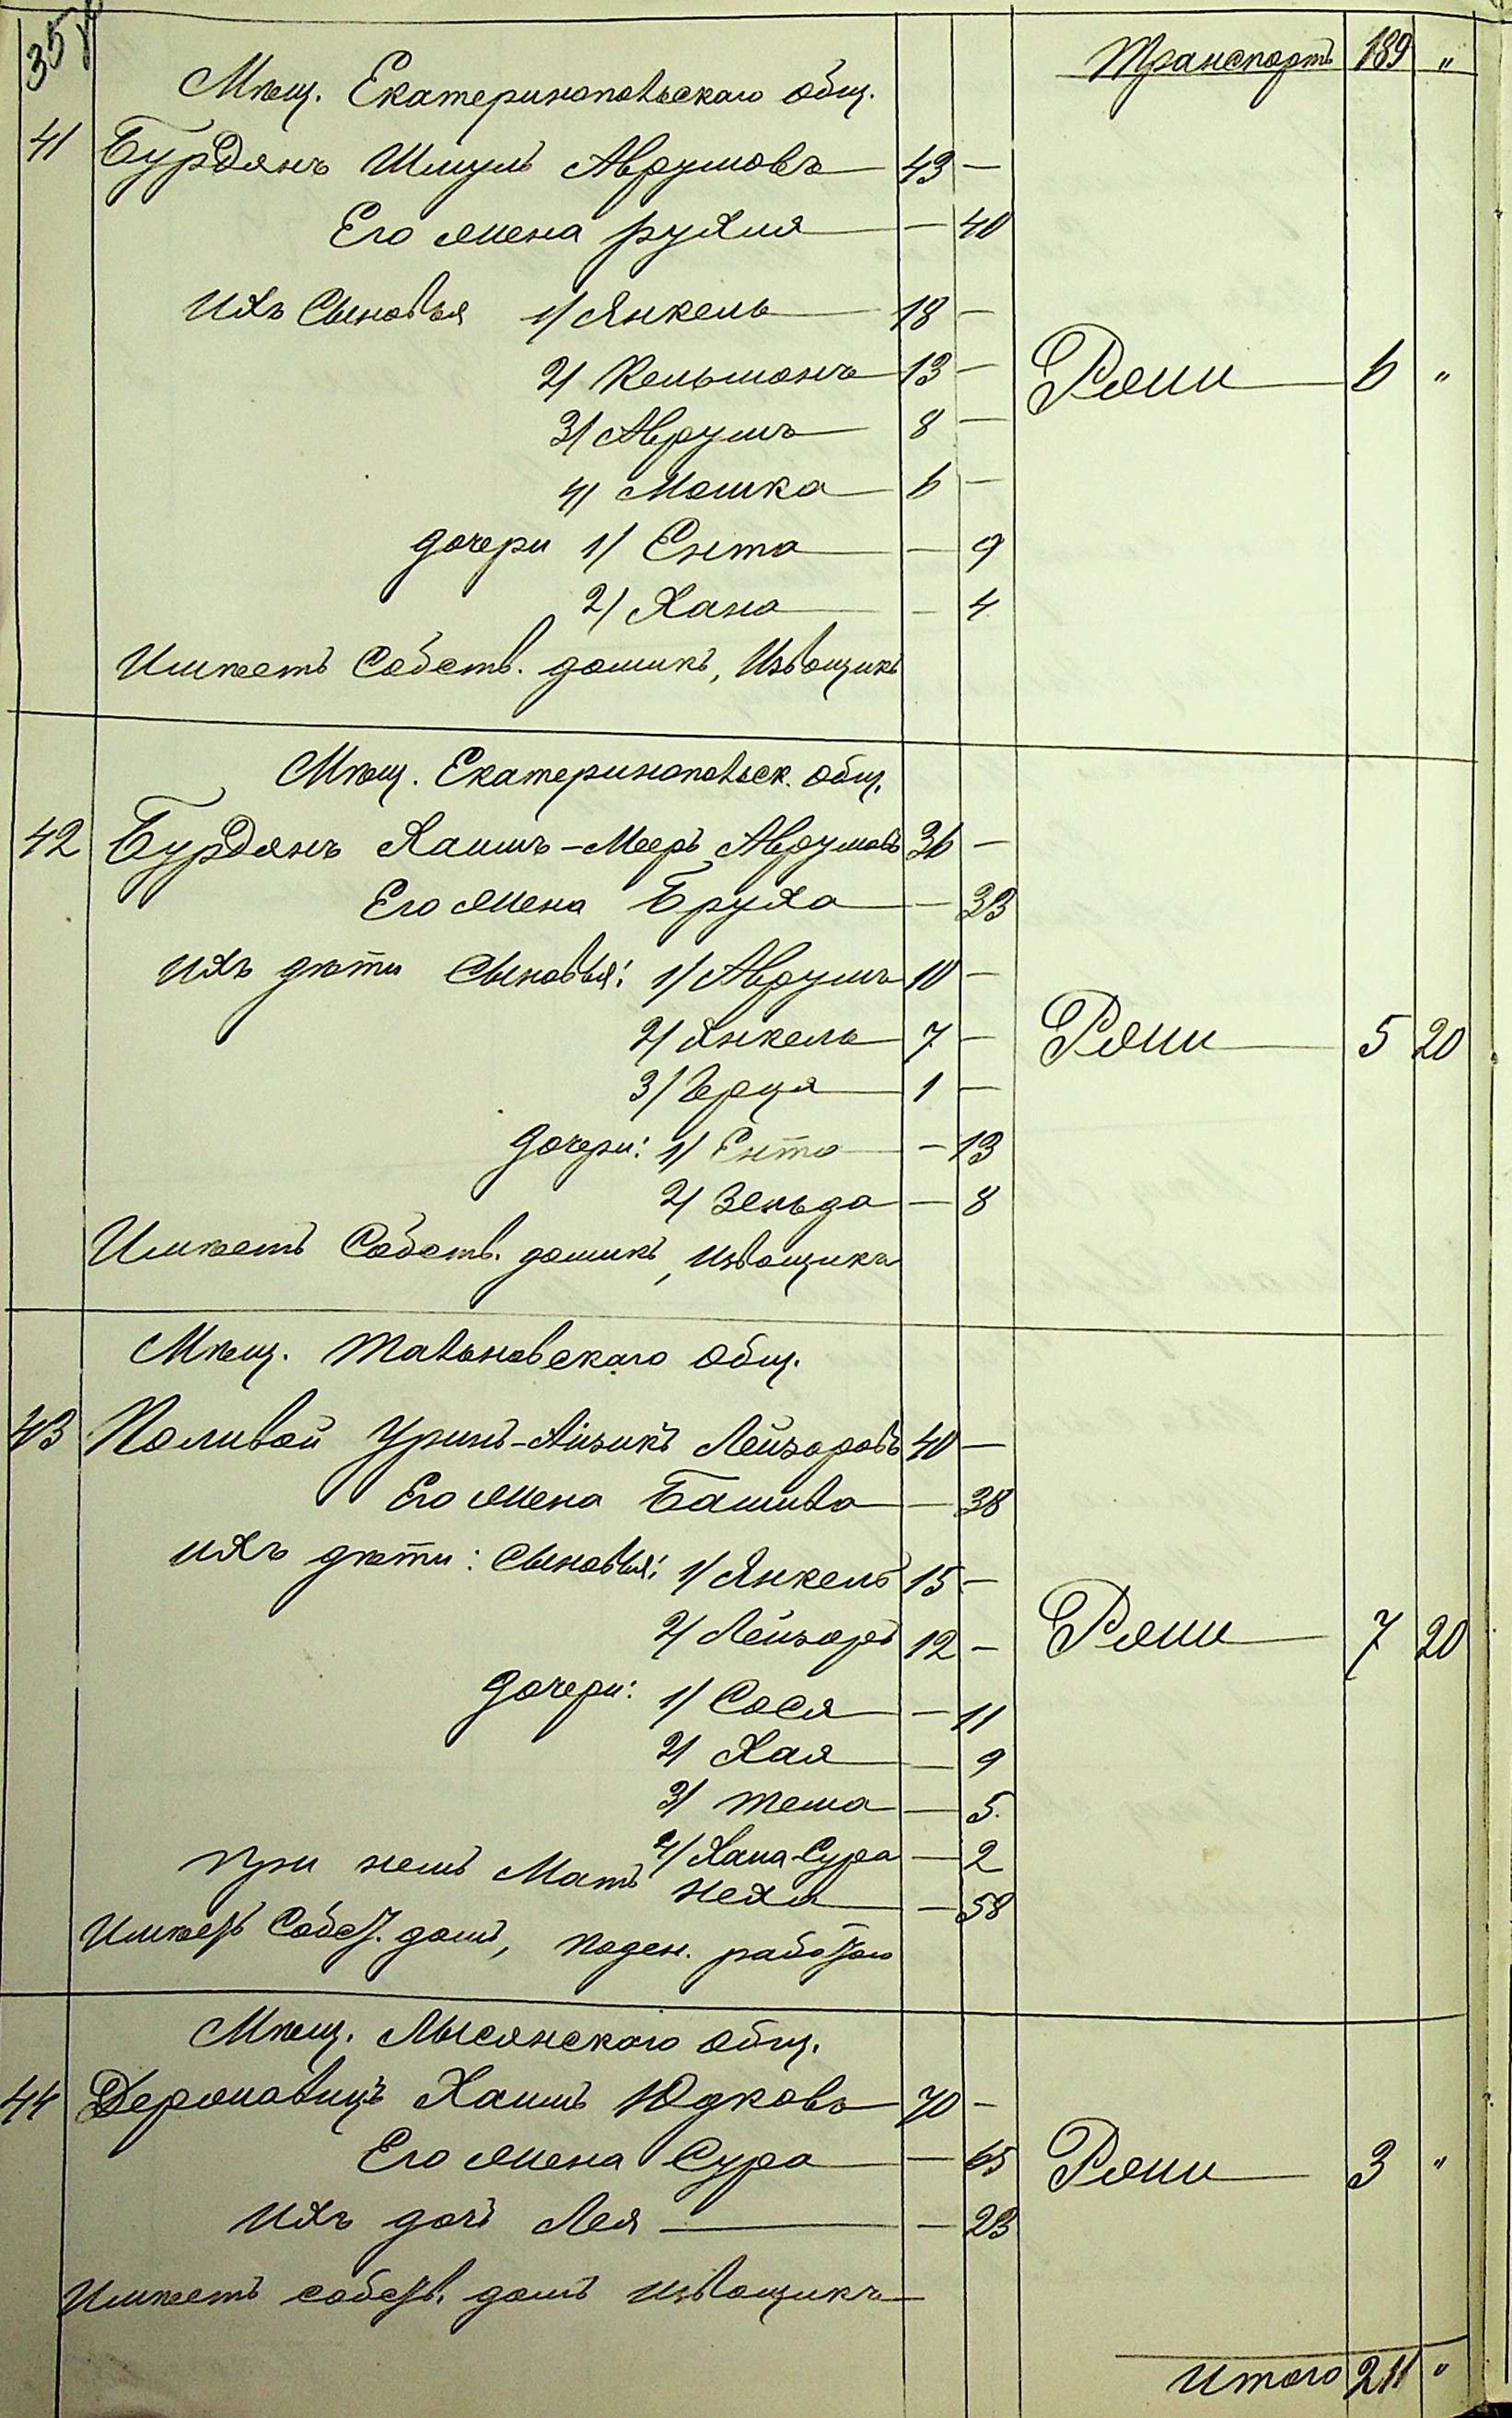 35
Транспортъ 189 "
Мѣщ. Екатеринопольскаго общ.
41 Бурдянъ Шмуль Аврумовъ 43 —
Его жена Рухля — 40
Ихъ сыновья 1/ Янкель 18 —
2/ Кельманъ 13 — Ряши 6 "
3/ Аврумъ 8 —
4/ Мошка 6 —
дочери 1/ Ента — 9
2/ Хана — 4
Имѣетъ Собств. домикъ, Извощикъ
Мѣщ. Екатеринопольск. общ.
42 Бурдянъ Хаимъ-Мееръ Аврумовъ 36 —
Его жена Бруха — 33
Ихъ дѣти Сыновья: 1/ Аврумъ 10 —
2/ Янкель 7 — Ряши 5 20
3/ Герця 1 —
Дочери: 1/ Ента — 13
2/ Зельда — 8
Имѣетъ Собств. домикъ, извощикъ
Мѣщ. Тальновскаго общ.
43 Поливой Уринъ-Айзикъ Лейзоровъ 40 —
Его жена Башива — 38
Ихъ дѣти: Сыновья: 1/ Янкель 15 —
2/ Лейзоръ 12 — Ряши 7 20
Дочери: 1/ Сося — 11
2/ Хая — 9
3/ Тема — 5
4/ Хана-Сура — 2
При немъ Мать Неха — 58
Имѣетъ Собст. домъ, поден. работаю
Мѣщ. Лысянскаго общ.
44 Хаимъ Юдковъ 70 —
Его жена Сура — 65 Ряши 3 "
Ихъ дочь Лея — 23
Имѣетъ собств. домъ извощикъ
Итого 211 "